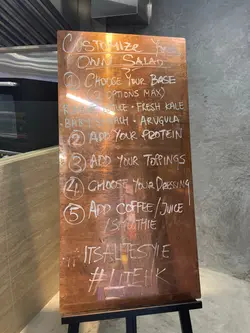 CUSTOMIZE YOUR
OWN SALAD
① CHOOSE YOUR BASE
(2 OPTIONS MAX)
• FRESH KALE
BABY SPINACH • ARUGULA
② ADD YOUR PROTEIN
③ ADD YOUR TOPPINGS
④ CHOOSE YOUR DRESSING
⑤ ADD COFFEE/JUICE
/SMOOTHIE
#ITSALIFESTYLE